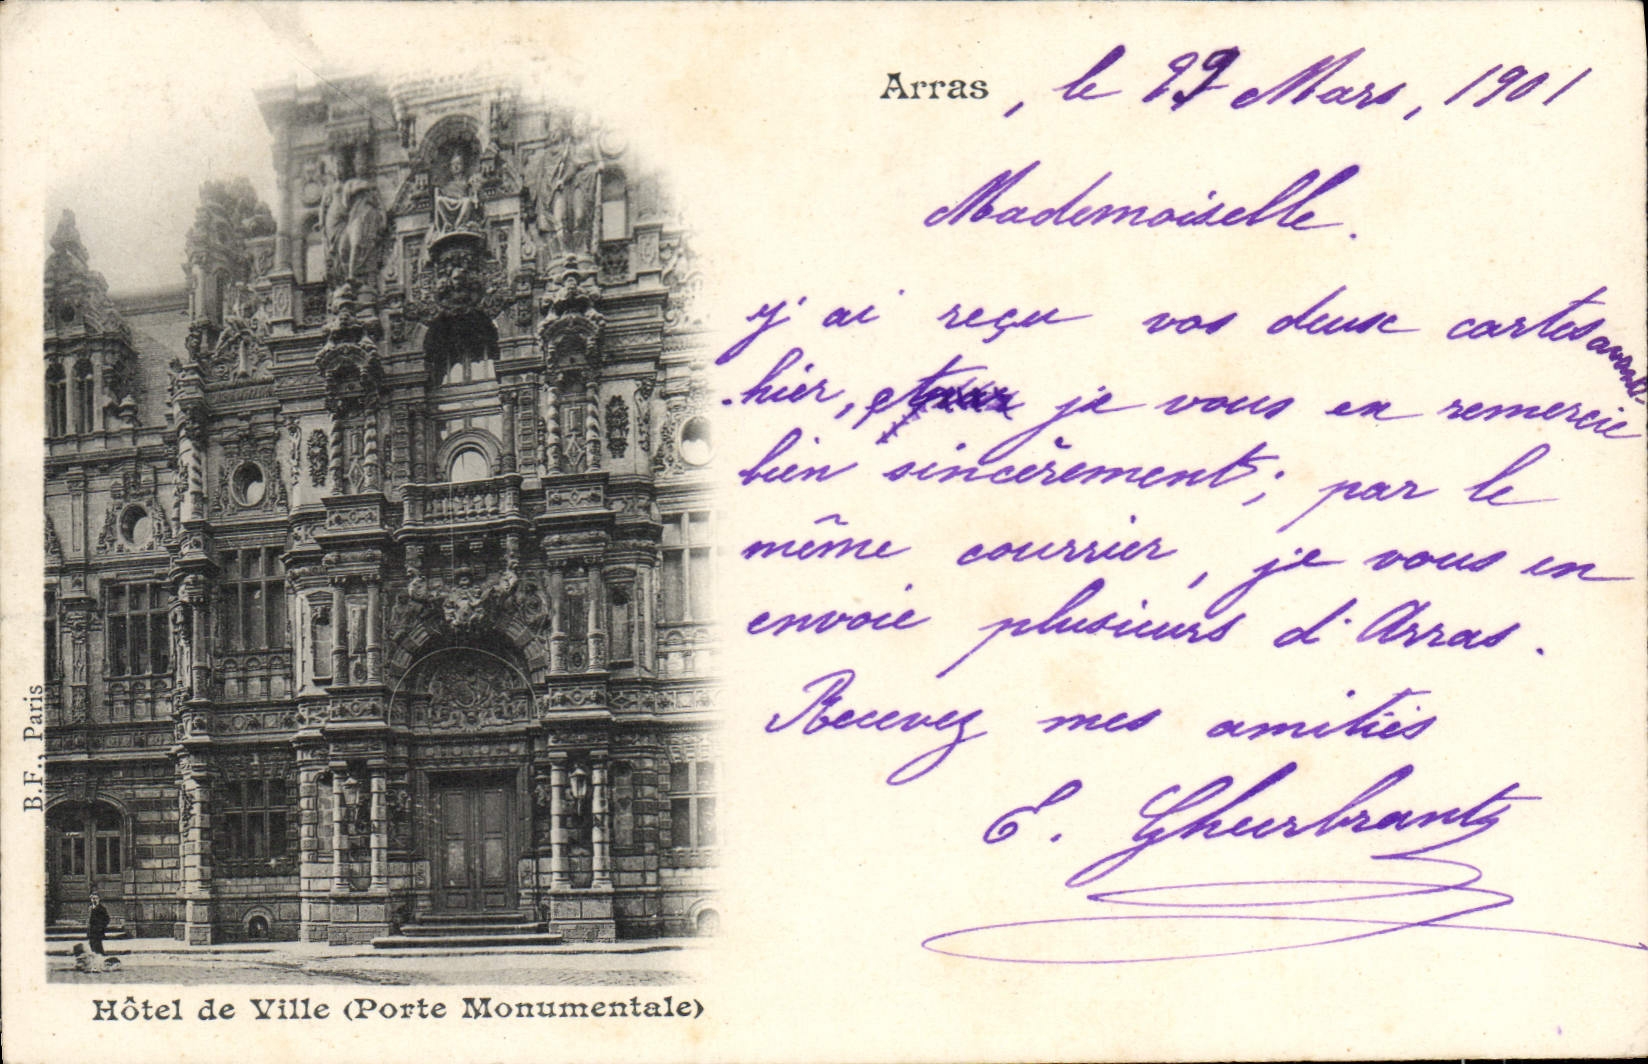 Arras, le 29 Mars, 1901
Mademoiselle.
j'ai reçu vos deux cartes
hier, et je vous en remercie
bien sincèrement; par le
même courrier, je vous en
envoie plusieurs d'Arras.
Recevez mes amitiés
E. Gheerbrant
B.F., Paris
Hôtel de Ville (Porte Monumentale)